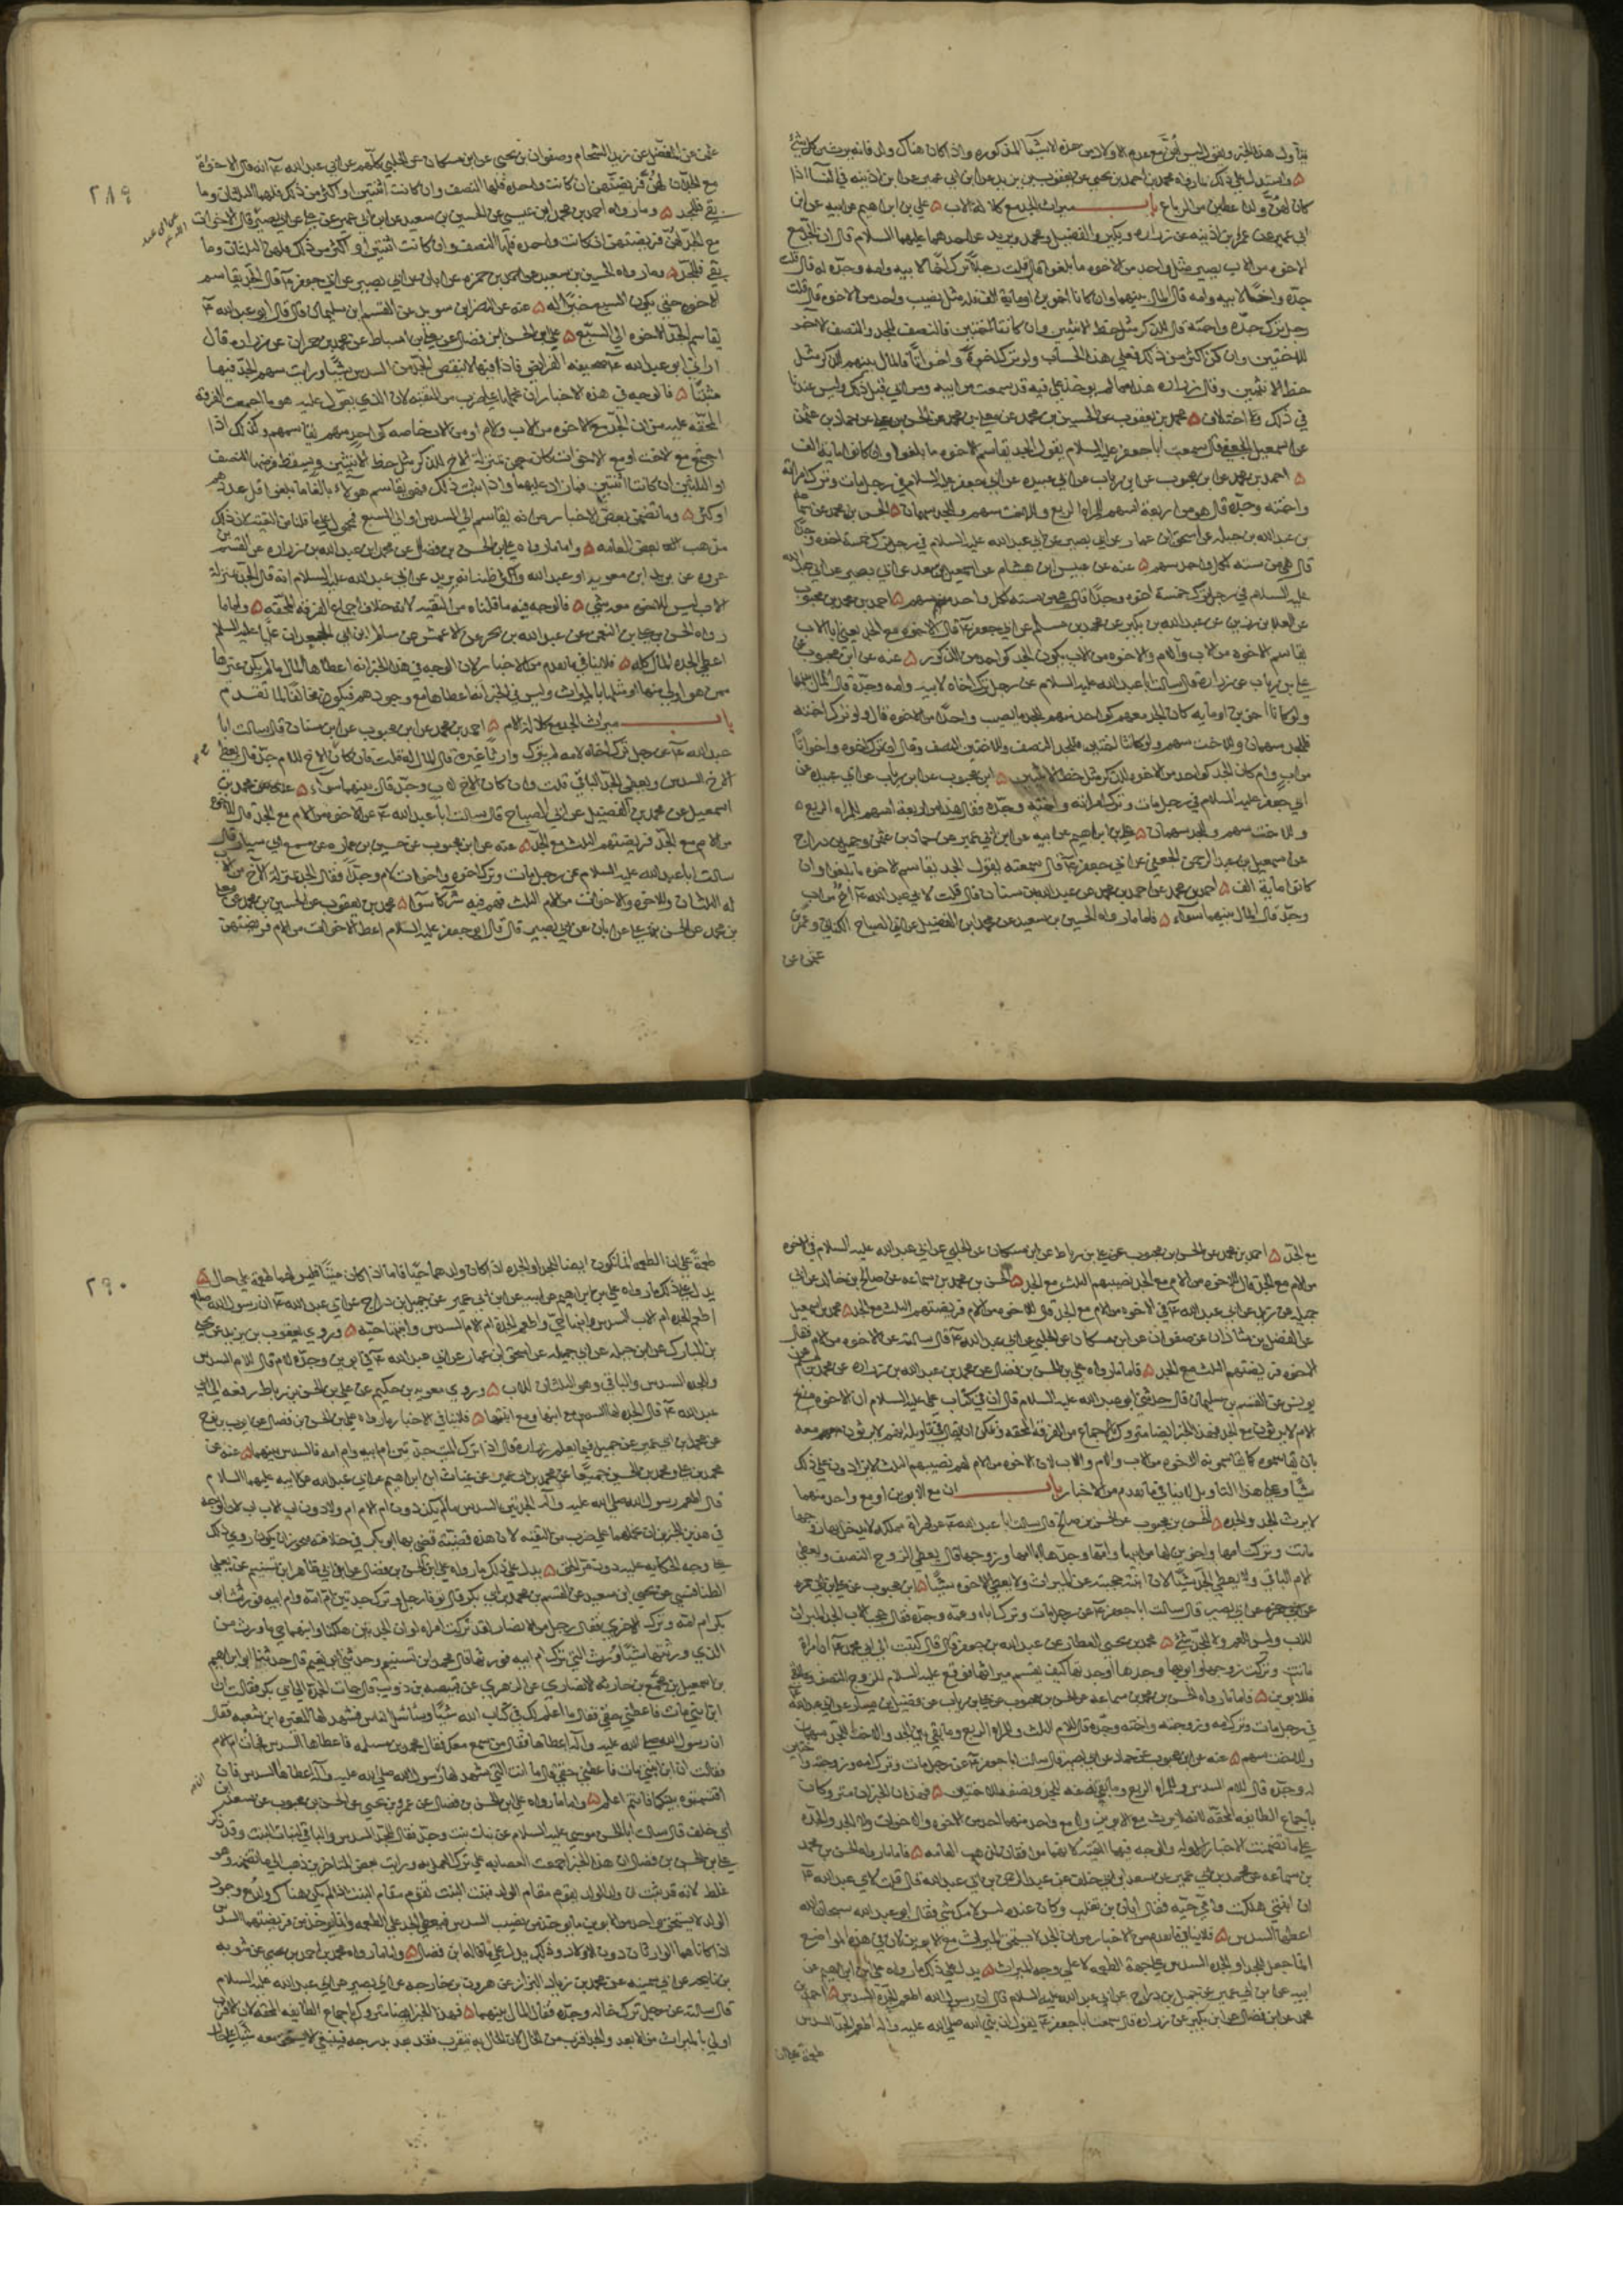 كان لهن ولد اعطين من الرباع باب ميراث الجد مع كلالة الاب علي بن ابراهيم عن ابيه عن ابن
ابي عمير عن عمر بن اذينه عن زراره وبكير والفضيل ومحمد وبريد عن احدهما عليهما السلام قال ان الجد مع
الاخوه من الاب يصير مثل واحد من الاخوه ما بلغوا قال قلت رجل ترك اخاه لابيه وامه وجده او قال قلت
جده واخاه لابيه وامه قال المال بينهما وان كانا اخوين او ماية الف فله مثل نصيب واحد من الاخوه قال قلت
رجل ترك جده واخته قال للذكر مثل حظ الانثيين وان كانتا اختين فالنصف للجد والنصف الاخر
للاختين وان كن اكثر من ذلك فعلى هذا الحساب ولو ترك اخوة واخواتا فالمال بينهم للذكر مثل
حظ الانثيين وقال زراره هذا مما لم يوخذ علي فيه قد سمعت من ابيه ومن ابي قبل ذلك وليس عندنا
في ذلك اختلاف محمد بن يعقوب عن الحسين بن محمد عن معلى بن محمد عن الحسن بن علي عن حماد بن عثمن
عن اسمعيل الجعفي قال سمعت ابا جعفر عليه السلام يقول الجد يقاسم الاخوه ما بلغوا وان كانوا ماية الف
احمد بن محمد عن ابن محبوب عن ابن رياب عن ابي عبيده عن ابي جعفر عليه السلام في رجل مات وترك امراته
واخته وجده قال هو من اربعة اسهم للمراه الربع وللاخت سهم وللجد سهمان الحسن بن محمد عن سماعه
بن عبد الله بن جبله عن اسحق بن عمار عن ابي بصير عن ابي عبد الله عليه السلام في رجل ترك خمسة اخوه وجدا
قال هي من سته لكل واحد سهم عنه عن عبيس بن هشام عن
عليه السلام في رجل ترك خمسة اخوه وجدا قال هي من سته لكل واحد منهم سهم احمد بن محمد بن محبوب
عن العلا بن رزين عن عبد الله بن بكير عن محمد بن مسلم عن ابي جعفر قال الاخوه مع الجد يعني ابا الاب
يقاسم الاخوه من الاب والام والاخوه من الاب يكون الجد كواحد من الذكور عنه عن ابن محبوب عن
علي بن رياب عن زراره قال سالت ابا عبد الله عليه السلام عن رجل ترك اخاه لابيه وامه وجده قال المال بينهما
ولو كانا اخوين او مايه كان الجد معهم كواحد منهم للجد ما يصيب واحدا من الاخوه قال ولو ترك اخته
فللجد سهمان وللاخت سهم ولو كانتا اختين فللجد النصف وللاختين النصف وقال ان ترك اخوه واخواتا
من اب وام كان الجد كواحد من الاخوه للذكر مثل حظ الانثيين ابن محبوب عن ابن رياب عن ابي عبيده عن
ابي جعفر عليه السلام في رجل مات وترك امراته واخته وجده فقال هذا من اربعة اسهم للمراه الربع
وللاخت سهم وللجد سهمان علي بن ابراهيم عن ابيه عن ابن ابي عمير عن حماد بن عثمن وجميل بن دراج
عن اسمعيل بن عبد الرحمن الجعفي عن ابي جعفر قال سمعته يقول الجد يقاسم الاخوه ما بلغوا وان
كانوا ماية الف احمد بن محمد عن احمد بن محمد عن عبد الله بن سنان قال قلت لابي عبد الله اخ من اب
وجد قال المال بينهما سواء فاما ما رواه الحسين بن سعيد عن محمد ابن الفضيل عن ابي الصباح الكناني وعمرو بن
عثمن عن
٢٨٩
عثمن عن المفضل عن زيد الشحام وصفوان بن يحيى عن ابن مسكان عن الحلبي كلهم عن ابي عبد الله انه قال الاخوات
مع الجد ان لهن فريضتهن ان كانت واحده فلها النصف وان كانت اثنتين او اكثر من ذلك فلهما الثلثان وما
بقي فللجد وما رواه احمد بن محمد ابن عيسى عن الحسين بن سعيد عن ابن ابي عمير عن علي عن ابي بصير قال الاخوات
مع الجد لهن فريضتهن ان كانت واحده فلها النصف وان كانت اثنتين او اكثر من ذلك فلهن الثلثان وما
بقي فللجد وما رواه الحسين بن سعيد عن حمزه عن ابان عن ابي بصير عن ابي جعفر قال الجد يقاسم
الاخوه حتى يكون السبع خيرا له عنه عن النضر ابن سويد عن القسم ابن سليمان قال قال ابو عبد الله
يقاسم الجد الاخوه الى السبع علي بن الحسن ابن فضال عن علي بن اسباط عن محمد بن حمران عن زراره قال
اراني ابو عبد الله صحيفة الفرائض فاذا فيها لا ينقص الجد من السدس شيا ورايت سهم الجد فيها
مثبتا فالوجه في هذه الاخبار ان نحملها على ضرب من التقيه لان الذي يعول عليه هو ما اجمعت الفرقة
المحقه عليه من ان الجد مع الاخوه من الاب والام او من الاب خاصه كواحد منهم يقاسمهم وكذلك اذا
اجتمع مع الاخت او مع الاخوات كان بمنزلة الاخ للذكر مثل حظ الانثيين ويسقط فرضها النصف
او الثلثين ان كانتا اثنتين فما زاد عليهما واذا ثبت ذلك فهو يقاسم هولاء بالغا ما بلغوا قل عددهم
او كثر وما تضمن بعض الاخبار من انه يقاسم الى السدس او الى السبع فمحمول على ما قلناه من التقيه لان ذلك
مذهب بعض العامه واما ما رواه علي بن الحسن بن فضال عن محمد بن عبد الله بن زراره عن القسم بن
عروه عن بريد ابن معويه او عبد الله واكثر ظني انه بريد عن ابي عبد الله عليه السلام انه قال الجد بمنزلة
الاب ليس للاخوه معه شي فالوجه فيه ما قلناه من التقيه لانه خلاف اجماع الفرقه المحقه واما ما
رواه الحسن بن علي بن النعمن عن عبد الله بن بحر عن الاعمش عن سالم ابن ابي الجعد ان عليا عليه السلم
اعطى الجده المال كله فلا ينافي ما تقدم من الاخبار لان الوجه في هذا الخبر انه اعطاها المال ما لم يكن غيرها
ممن هو اولى منها او مثلها بالميراث وليس في الخبر انه اعطاها مع وجودهم فيكون مخالفا لما تقدم
باب ميراث الجد مع كلالة الام احمد بن محمد عن ابن محبوب عن ابن سنان قال سالت ابا
عبد الله عن رجل ترك اخاه لامه لم يترك وارثا غيره قال المال له قلت فان كان مع الاخ للام جد قال يعطى
الاخ السدس ويعطى الجد الباقي قلت وان كان الاخ لاب وجد قال بينهما سواء
اسمعيل عن محمد بن الفضيل عن ابي الصباح قال سالت ابا عبد الله عن الاخوه من الام مع الجد قال للاخوه
من الام مع الجد فريضتهم الثلث مع الجد عنه عن ابن محبوب عن حسين بن عماره عن مسمع ابي سيار قال
سالت ابا عبد الله عليه السلام عن رجل مات وترك اخوه واخوات لام وجدا فقال الجد بمنزلة الاخ من الاب
له الثلثان وللاخوه والاخوات من الام الثلث فهم فيه شركاء سوا محمد بن يعقوب عن الحسين بن محمد عن معلى
بن محمد عن الحسن بن علي عن ابان عن ابي بصير قال قال ابو جعفر عليه السلام اعط الاخوات من الام فريضتهن
مع الجد احمد بن محمد عن الحسن بن محبوب عن علي بن رباط عن ابن مسكان عن الحلبي عن ابي عبد الله عليه السلام في الاخوه
من الام مع الجد قال للاخوه من الام مع الجد نصيبهم الثلث مع الجد الحسن بن محمد بن سماعه عن صالح بن خالد عن ابي
جميله عن زيد عن ابي عبد الله في الاخوه من الام مع الجد قال للاخوه من الام فريضتهم الثلث مع الجد محمد بن اسمعيل
عن الفضل بن شاذان عن صفوان عن ابن مسكان عن الحلبي عن ابي عبد الله قال سالته عن الاخوه من الام فقال
للاخوه فريضتهم الثلث مع الجد فاما ما رواه علي بن الحسن بن فضال عن محمد بن عبد الله بن زراره عن محمد بن
يونس عن القسم بن سليمان قال حدثني ابو عبد الله عليه السلام قال ان في كتاب علي عليه السلام ان الاخوه من
الام لا يرثون مع الجد فهذا الخبر ايضا متروك باجماع من الفرقة المحقه ويمكن ان يقال في تاويله انهم لا يرثون معه
بان يقاسموه كما يقاسمونه الاخوه من الاب والام والاب لان الاخوه من الام لهم نصيبهم الثلث لا يزادون على ذلك
شيا وعلى هذا التاويل لا ينافي ما تقدم من الاخبار باب ان مع الابوين او مع واحد منهما
لا يرث الجد والجده الحسن بن محبوب عن الحسن بن صالح قال سالت ابا عبد الله عن امراة مملكة لم يدخل بها زوجها
ماتت وتركت امها واخوين لها من ابيها وامها وجدها ابا امها وزوجها قال يعطى الزوج النصف ويعطى
الام الباقي ولا يعطى الجد شيا لان ابنته حجبته عن الميراث ولا يعطى الاخوه شيا ابن محبوب عن علي بن ابي حمزه
عن ابي بصير قال سالت ابا جعفر عن رجل مات وترك اباه وعمه وجده فقال حجب الاب الجد الميراث
للاب وليس للعم ولا للجد شي محمد بن يحيى العطار عن عبد الله بن جعفر قال كتبت الى ابي محمد امراة
ماتت وتركت زوجها وابويها وجدها او جدتها كيف يقسم ميراثها فوقع عليه السلام للزوج النصف وما بقي
فللابوين فاما ما رواه الحسن بن محمد بن سماعه عن الحسن بن محبوب عن علي بن رياب عن فضيل بن يسار عن ابي عبد الله
في رجل مات وترك امه وزوجته واخته وجده قال للام الثلث وللمراه الربع وما بقي بين الجد والاخت للجد سهمان
وللاخت سهم عنه عن ابن محبوب عن حماد عن ابي بصير قال سالت ابا جعفر عن رجل مات وترك امه وزوجته واختين
له وجده قال للام السدس وللمراه الربع وما بقي نصفه للجد ونصفه للاختين فهذان الخبران متروكان
باجماع الطائفه المحقه لانه لا يرث مع الابوين ولا مع واحد منهما احد من الاخوه والاخوات ولا الجد والجده
على ما تضمنت الاخبار الاوله والوجه فيهما التقيه لانهما موافقان لمذهب العامه فاما ما رواه الحسن بن محمد
بن سماعه عن محمد بن ابي عمير عن سعد بن ابي خلف عن عبد الرحمن بن ابي عبد الله قال قلت لابي عبد الله
ان ابنتي هلكت وامي حيه فقال ابان بن تغلب وكان عنده ليس لامك شي فقال ابو عبد الله سبحان الله
اعطها السدس فلا ينافي ما تقدم من الاخبار من ان الجد لا يستحق الميراث مع الابوين لان في هذه المواضع
انما جعل للجد او الجده السدس على جهة الطعمه لا على وجه الميراث يدل على ذلك ما رواه علي بن ابراهيم عن
ابيه عن ابن ابي عمير عن جميل بن دراج عن ابي عبد الله عليه السلام قال ان رسول الله اطعم الجدة السدس احمد بن
محمد عن ابن فضال عن ابن بكير عن زراره قال سمعت ابا جعفر يقول ان نبي الله صلى الله عليه واله اطعم الجدة السدس
طعمة
٢٩٠
طعمة على ان الطعمه انما تكون ايضا للجد او الجده اذا كان ولدهما حيا فاما اذا كان ميتا فليس لهما طعمة على حال
يدل على ذلك ما رواه علي بن ابراهيم عن ابيه عن ابن ابي عمير عن جميل بن دراج عن ابي عبد الله ان رسول الله صلى
اطعم الجده ام الاب السدس وابنها حي واطعم الجدة ام الام السدس وابنتها حيه وروى يعقوب بن يزيد عن يحيى
بن المبارك عن ابن جبله عن ابي جميله عن اسحق بن عمار عن ابي عبد الله في ابوين وجدة لام قال للام السدس
وللجده السدس والباقي وهو الثلثان للاب وروى معويه بن حكيم عن علي بن الحسن بن رباط رفعه الى ابي
عبد الله قال الجده لها السدس مع ابنها ومع ابنتها فلا ينافي الاخبار ما رواه علي بن الحسن بن فضال عن ايوب بن نوح
عن محمد بن ابي عمير عن جميل فيما يعلم رواه قال اذا ترك الميت جدتين ام ابيه وام امه فالسدس بينهما عنه عن
محمد بن علي ومحمد بن الحسين جميعا عن محمد بن ابي عمير عن غياث ابن ابراهيم عن ابي عبد الله عن ابيه عليهما السلام
قال اطعم رسول الله صلى الله عليه واله الجدتين السدس ما لم يكن دون ام الام ام ولا دون ام الاب اب لان الوجه
في هذين الخبرين ان نحملهما على ضرب من التقيه لان هذه قضية قضى بها ابو بكر في خلافته فيجوز ان يكون روي ذلك
على وجه الحكايه عليه دون تمر الحق يدل على ذلك ما رواه علي بن الحسن بن فضال عن
الطنافسي عن يحيى ابن سعيد عن القسم بن محمد بن ابي بكر قال توفي رجل وترك جدتين ام امه وام ابيه فورث ابو
بكر ام امه وترك الاخرى فقال رجل من الانصار لقد تركت امراة لو ان الجدتين هلكتا وابنهما حي ما ورث من
الذي ورثتها شيا وورث التي تركت ام ابيه فورثها قال محمد ابن تسنيم وحدثني ابو نعيم قال حدثنا ابراهيم
بن اسمعيل بن مجمع بن حارثه الانصاري عن الزهري عن قبيصه بن ذويب قال جات الجدة الى ابي بكر فقالت ان
ابن ابني مات فاعطني حقي فقال ما اعلم لك في كتاب الله شيا وساسل الناس فشهد لها المغيره ابن شعبه فقال
ان رسول الله صلى الله عليه واله اعطاها فقال من سمع معك فقال محمد بن مسلمه فاعطاها السدس فجات ام الام
فقالت ان ابن ابنتي مات فاعطني حقي قال ما انت التي شهد لها رسول الله صلى الله عليه واله اعطاها السدس فان
اقتسمتموه بينكما فانتم اعلم واما ما رواه علي ابن الحسن بن فضال عن عمرو بن عثمن عن الحسن بن محبوب عن سعد ابن
ابي خلف قال سالت ابا الحسن موسى عليه السلام عن بنات بنت وجد فقال للجد السدس والباقي لبنات البنت وقد ذكر
علي بن الحسن بن فضال ان هذا الخبر اجمعت العصابه على ترك العمل به ورايت بعض المتاخرين ذهب الى ما تضمنه وهو
غلط لانه قد ثبت ان ولد الولد يقوم مقام الولد فبنت البنت تقوم مقام البنت اذا لم يكن هناك ولد ومع وجود
الولد لا يستحق واحد من الابوين ما يوخذ من نصيب السدس فيعطى الجد على الطعمه وانما يوخذ من فريضتهما السدس
اذا كانا هما الوارثان دون الاولاد وذلك يدل على ما قاله ابن فضال واما ما رواه محمد بن احمد بن يحيى عن
عن محمد بن زياد البزاز عن هرون بن خارجه عن ابي بصير عن ابي عبد الله عليه السلام
قال سالته عن رجل ترك خاله وجده فقال المال بينهما فهذا الخبر ايضا متروك باجماع الطائفه المحقه لان الاقرب
اولى بالميراث من الابعد والجد اقرب من الخال لان الخال به يتقرب فقد بعد بدرجه فينبغي لا يستحق معه شيا على حال